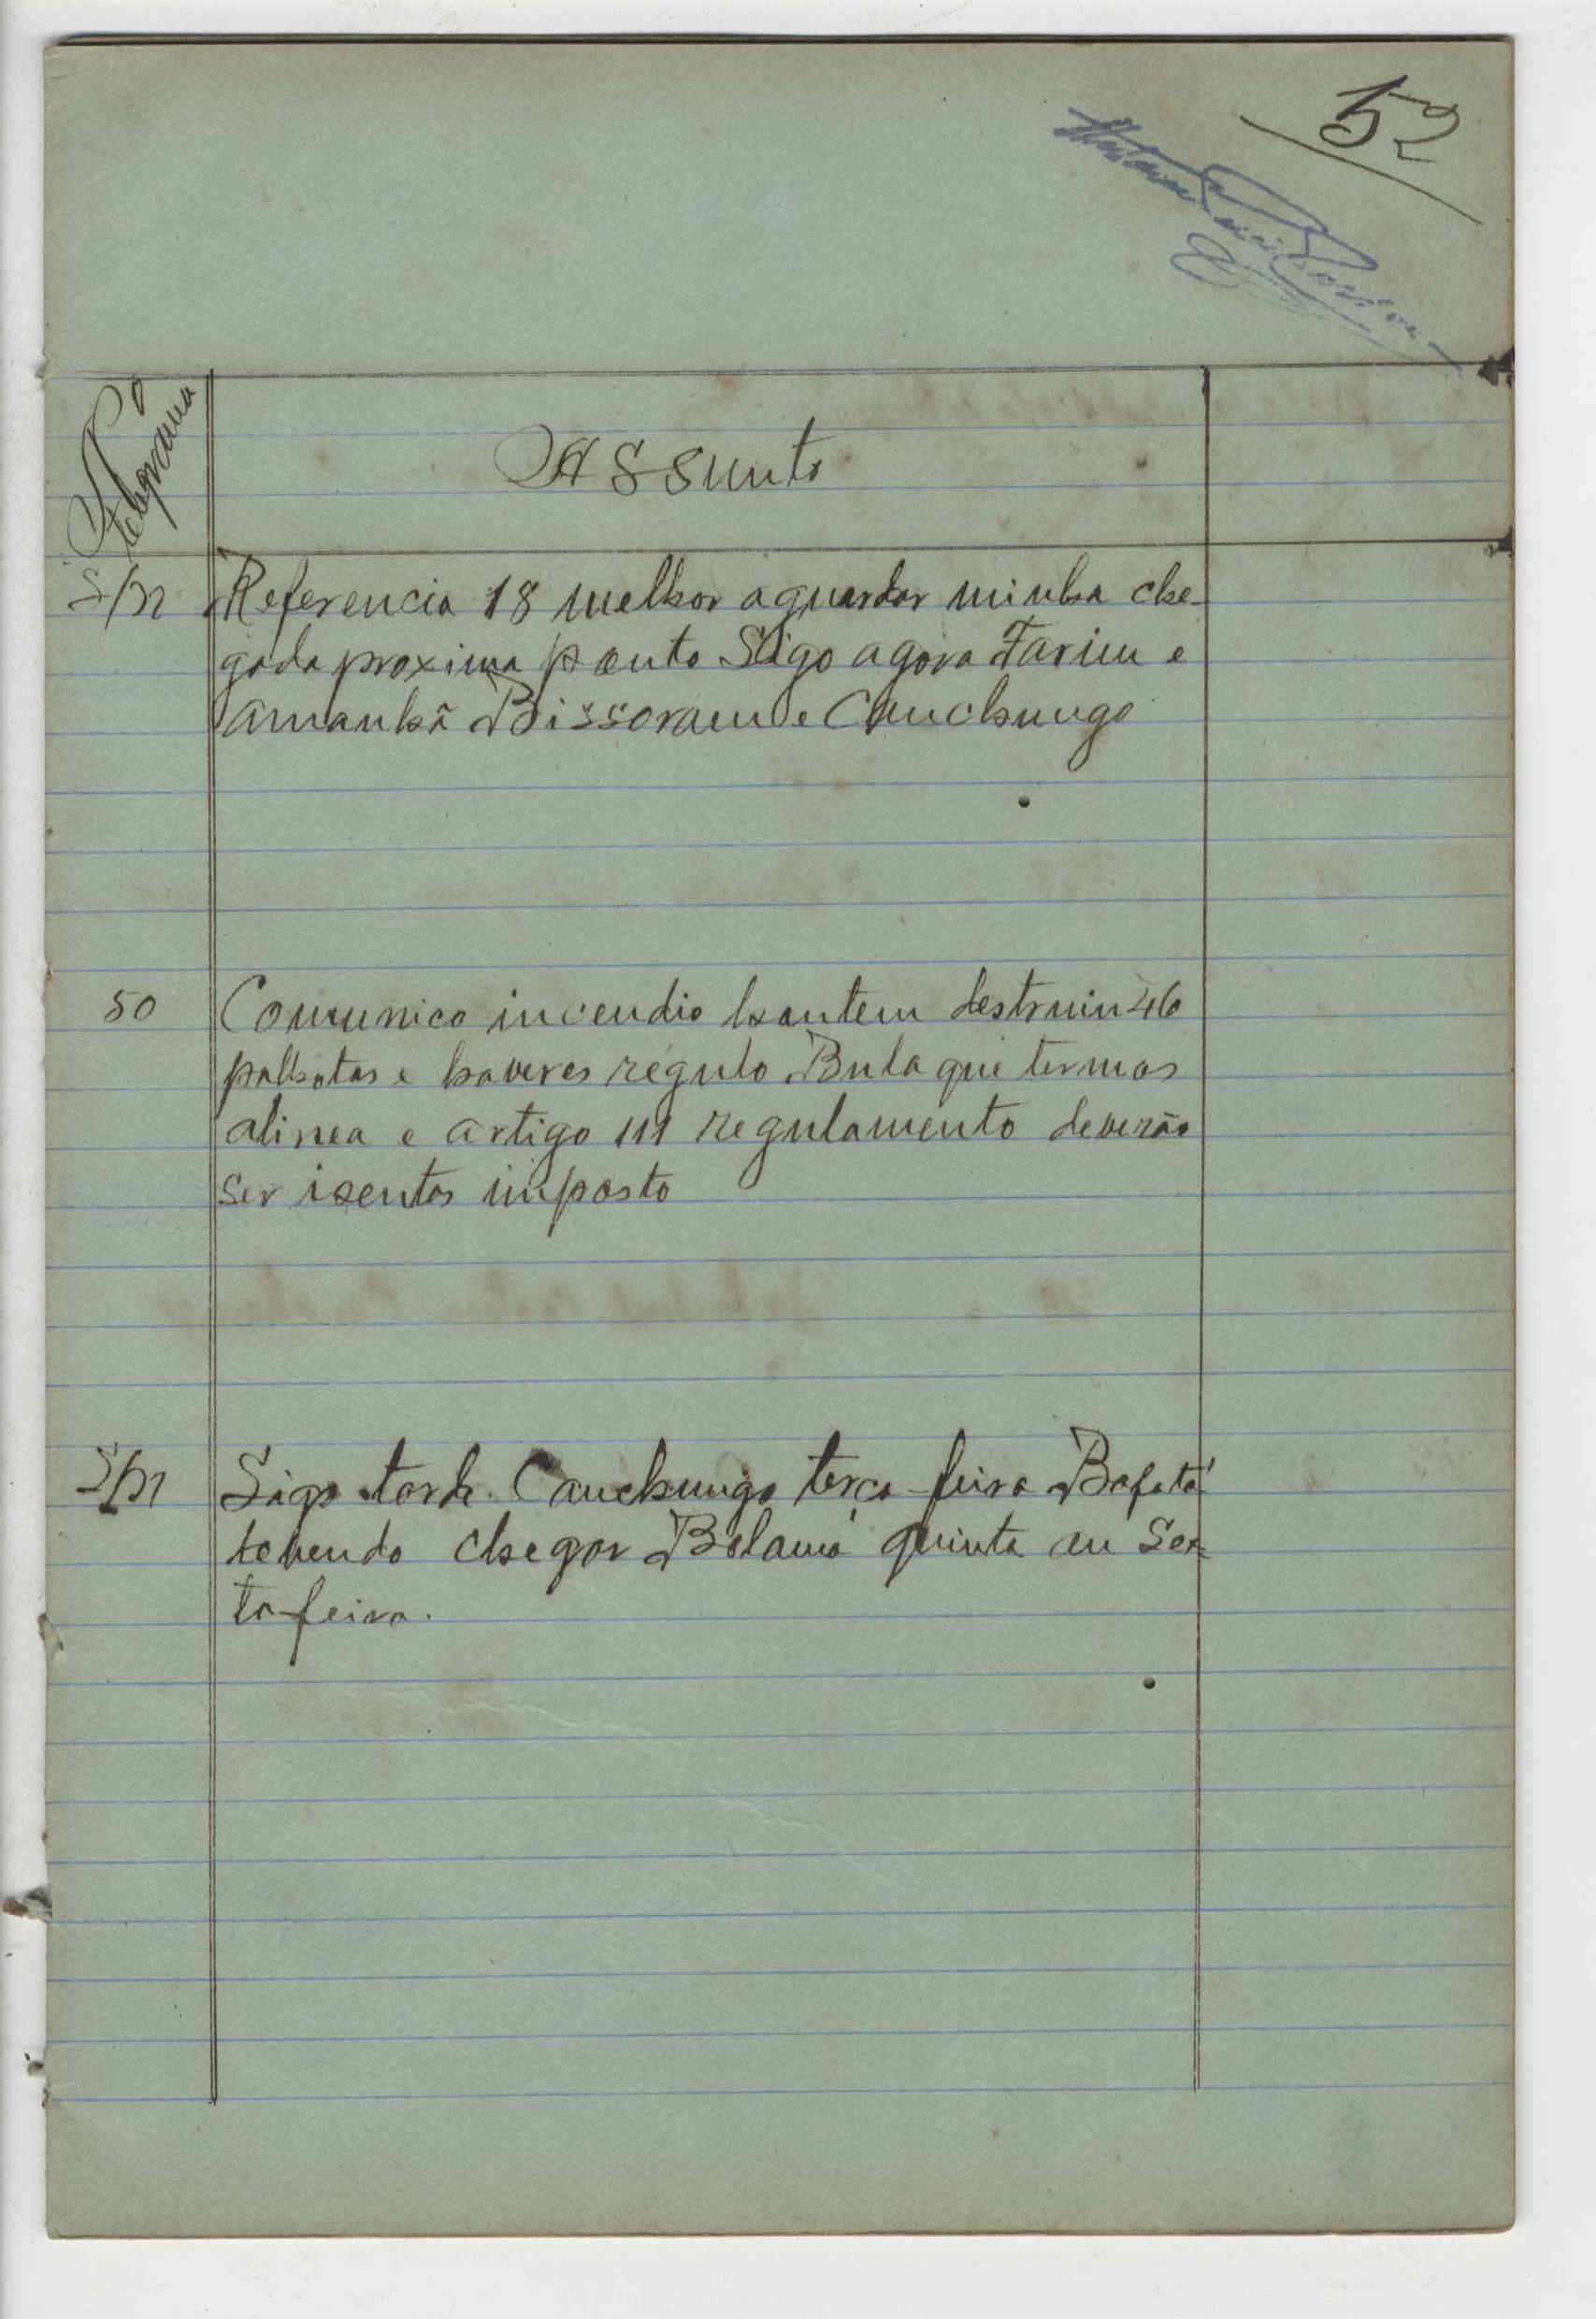 52
Nº
telegrama
Assunto
S/n Referencia 18 melhor aguardar minha che-
gada proxima ponto Sigo agora Farim e
amanhã Bissoram e Canchungo
50 Comunico incendio hontem destruiu 46
palhotas e haveres régulo Bula que termos
alinea e artigo 111 regulamento deverão
ser isentos imposto
S/n Sigo tarde Canchungo terça-feira Bafatá
devendo chegar Bolama quinta ou Sex-
ta-feira.